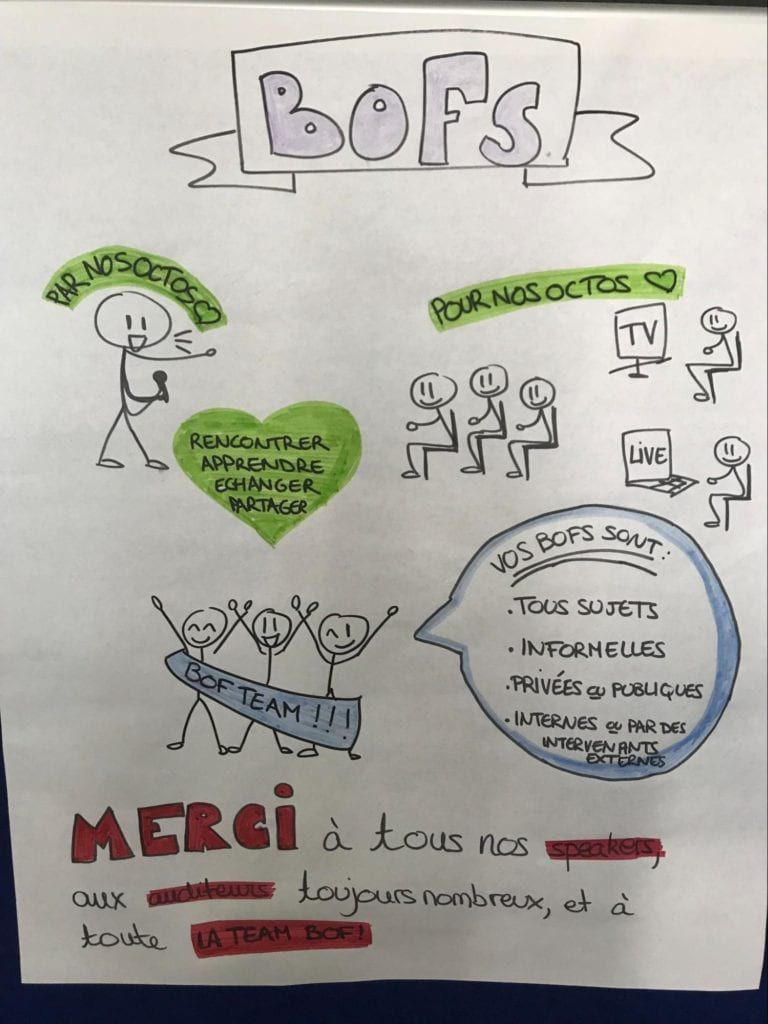 BOFS
PAR NOS OCTOS
POUR NOS OCTOS
TV
LIVE
RENCONTRER
APPRENDRE
ECHANGER
PARTAGER
VOS BOFS SONT:
. TOUS SUJETS
. INFORMELLES
. PRIVÉES OU PUBLIQUES
. INTERNES OU PAR DES
INTERVENANTS
EXTERNES
BOF TEAM !!!
MERCI à tous nos speakers,
aux auditeurs toujours nombreux, et à
toute LA TEAM BOF!